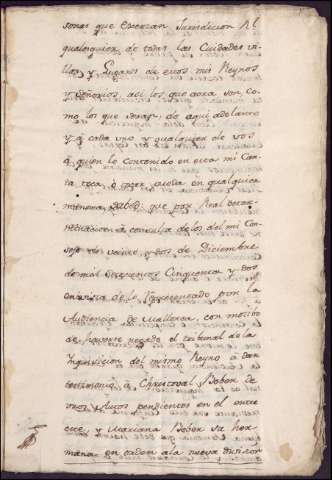 sonas que exerzan Jurisdicion Rl
qualesquier, de todas las Ciudades vi-
llas, y Lugares de estos mis Reynos
y Señorios, asi los que aora son, co-
mo los que seran, de aqui adelante
y á cada uno y qualquier de vos
á quien lo contenido en esta mi Car-
ta toca, ó tocar pueda en qualquier
manera, Sabed: que por Real deter-
minacion á consulta de los del mi Con-
sejo de veinte y dos de Diciembre
de mil setecientos Cinquenta y dos
en vista de lo representado por la
Audiencia de Mallorca, con motibo
de haverse negado el tribunal de la
Inquisicion del mismo Reyno á dar
testimonio, á Christoval Bobon de
unos Autos pendientes en el entre
este, y Mariana Bobon su her-
mana en orden á la nueva